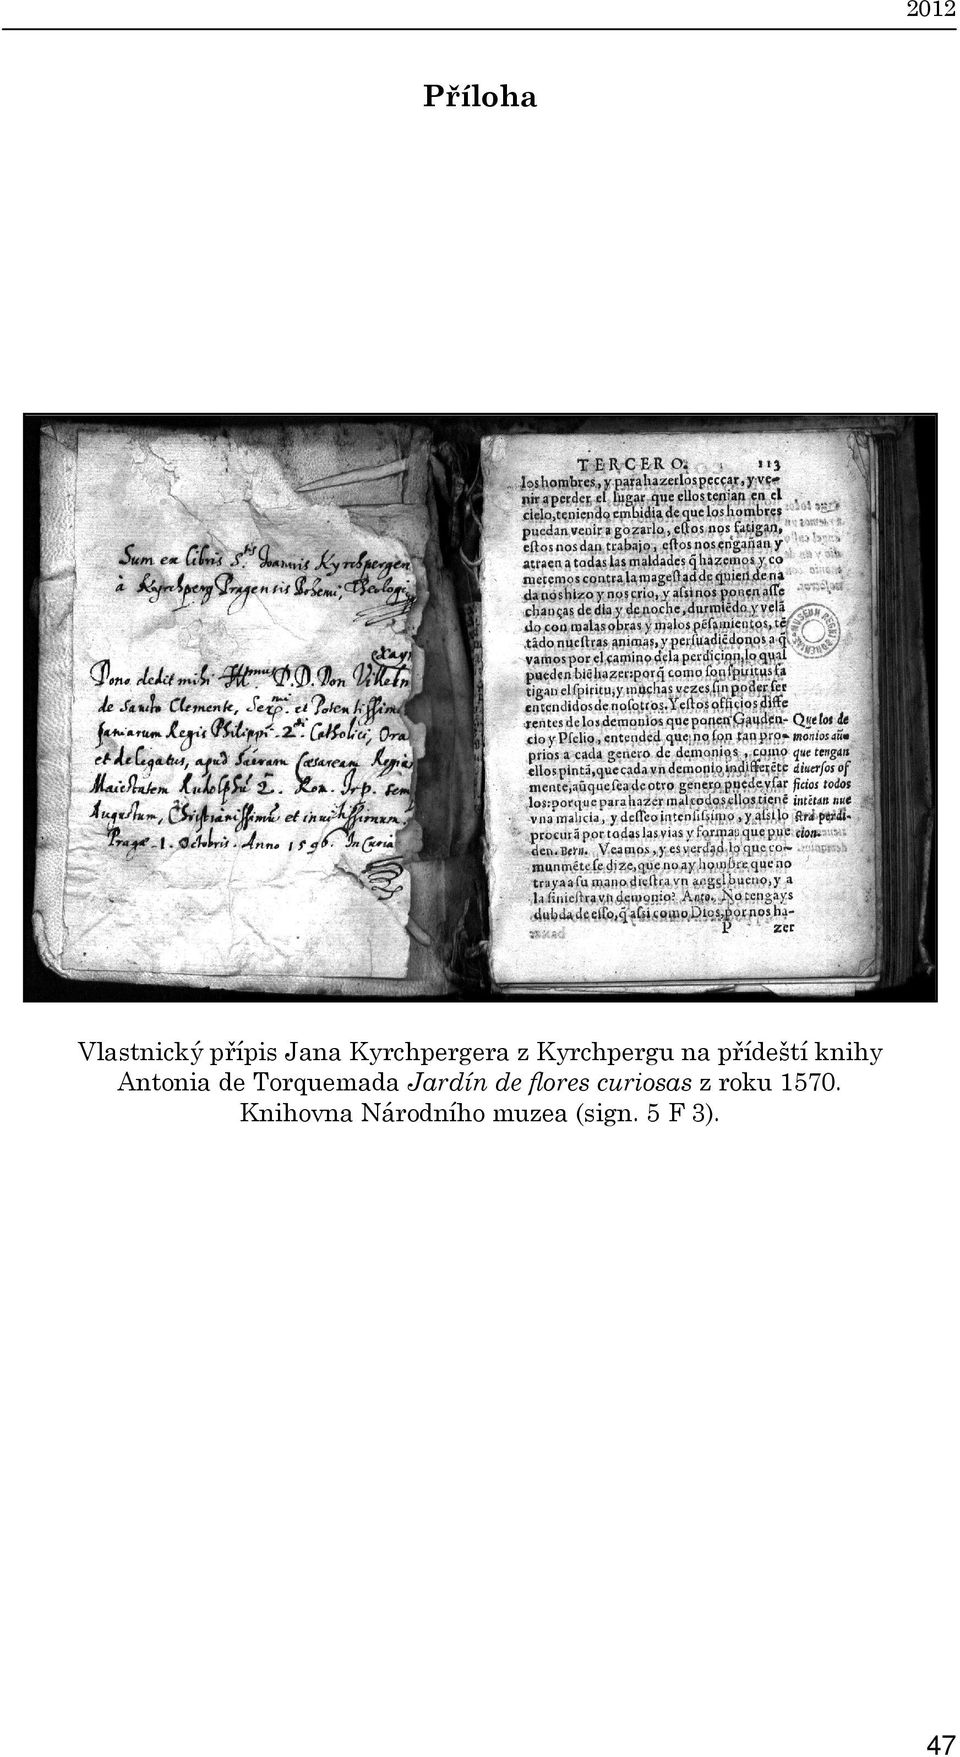 2012
Příloha
Sum ex libris S. Joannis Kyrchpergen
à Kyrchperg Pragensis Bohemi, Theologi
Dono dedit mihi D.D. Don
de Sancto Clemente, et Potentissimi
paniarum Regis Philippi 2. Catholici, Ora
et delegatus, apud Sacram Cæsaream Regiam
Maiestatem Rudolphū 2. Rom. Imp. sem
Augustum, Christianissimū et inuictissimum.
Pragæ 1. Octobris. Anno 1596. In Curia
TERCERO. 113
los hombres, y para hazerlos peccar, y ve-
nir a perder el lugar que ellos tenian en el
cielo, teniendo embidia de que los hombres
puedan venir a gozarlo, eſtos nos fatigan,
eſtos nos dan trabajo, eſtos nos engañan y
atraen a todas las maldades q̃ hazemos y co
metemos contra la mageſtad de quien de na
da nos hizo y nos crio, y aſsi nos ponen aſſe
chanças de dia y de noche, durmiẽdo y velã
do con malas obras y malos pẽſamientos, tẽ
tãdo nueſtras animas, y perſuadiẽdonos a q̃
vamos por el camino dela perdicion, lo qual
pueden biẽ hazer: porq̃ como ſon ſpiritus fa
tigan el ſpiritu, y muchas vezes ſin poder ſer
entendidos de noſotros. Y eſtos officios diffe
rentes de los demonios que ponen Gauden-
cio y Pſelio, entended que no ſon tan pro-
prios a cada genero de demonios, como
ellos pintã, que cada vn demonio indifferẽte
mente, aũque ſea de otro genero puede vſar
los: porque para hazer mal todos ellos tienẽ
vna malicia, y deſſeo intenſiſsimo, y aſsi lo
procurã por todas las vias y formas que pue
den. Bern. Veamos, y es verdad lo que co-
munmẽte ſe dize, que no ay hombre que no
traya a ſu mano dieſtra vn angel bueno, y a
la ſinieſtra vn demonio? Anto. No tengays
dubda de eſſo, q̃ aſsi como Dios, por nos ha-
P zer
Que los de
monios aũ
que tengan
diuerſos of
ficios todos
intẽtan nue
ſtra perdi-
cion.
MUSEUM REGNI BOHEMIAE
Vlastnický přípis Jana Kyrchpergera z Kyrchpergu na přídeští knihy
Antonia de Torquemada Jardín de flores curiosas z roku 1570.
Knihovna Národního muzea (sign. 5 F 3).
47